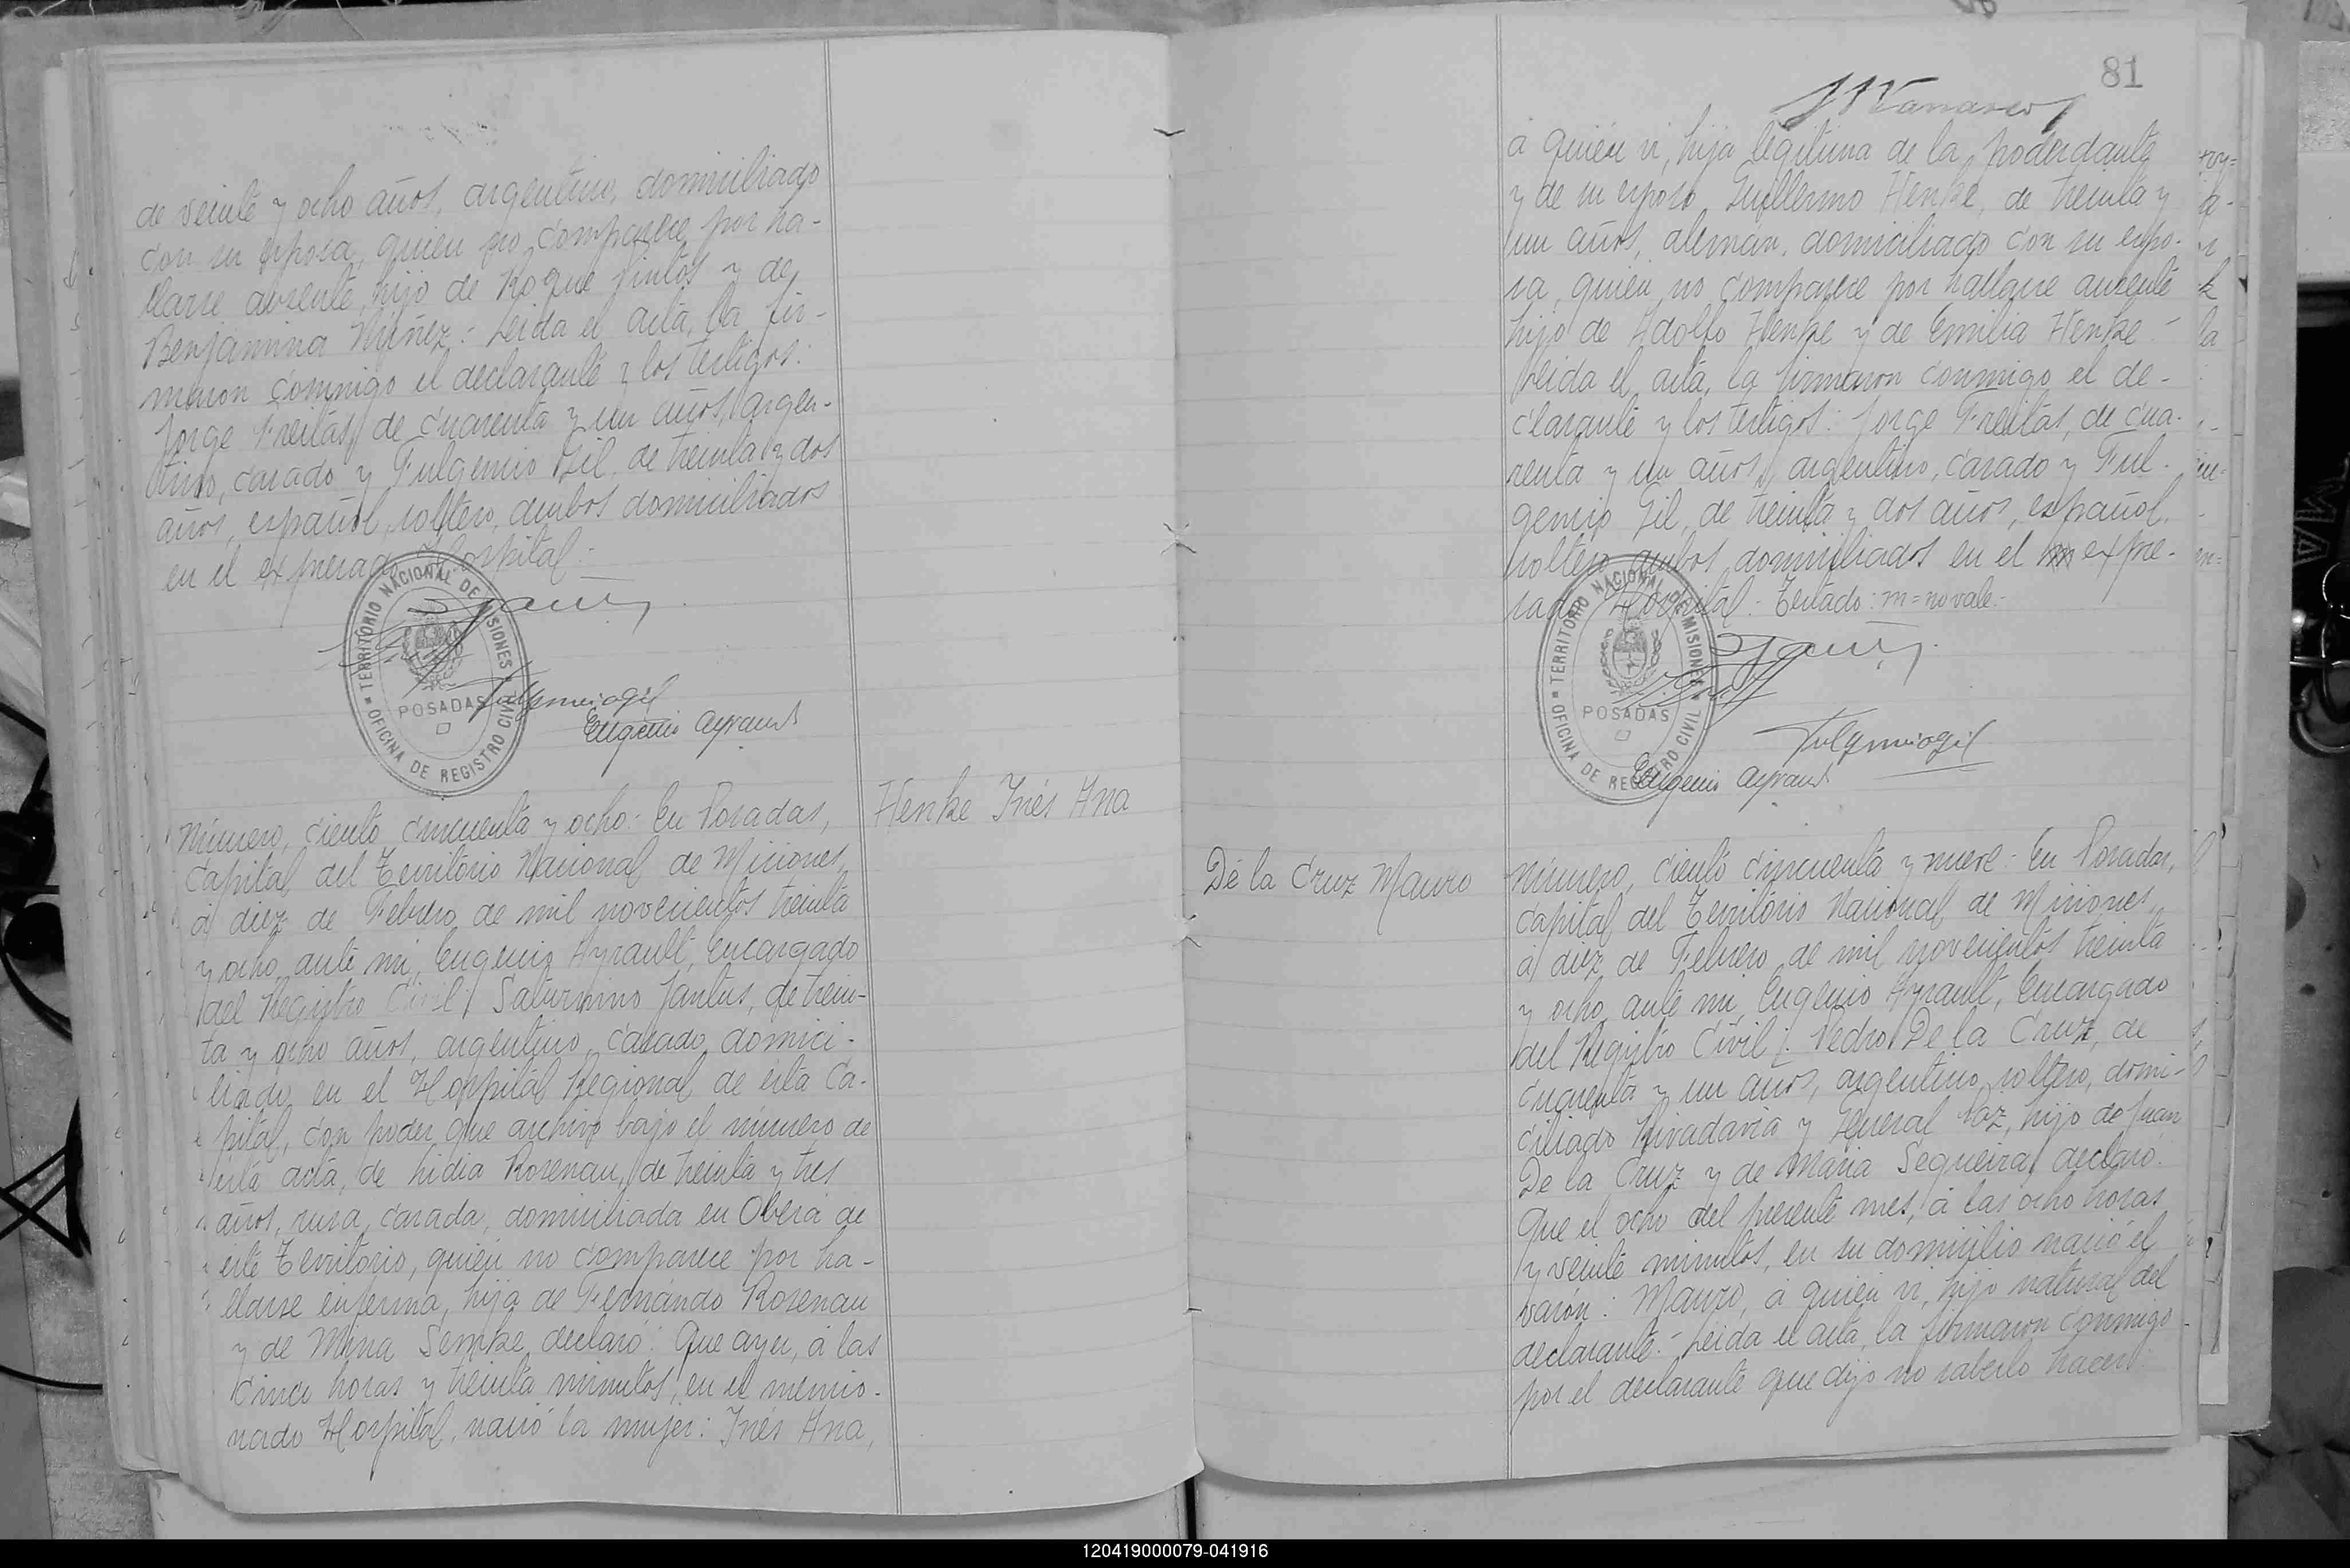 de veinte y ocho años, argentino, domiciliado
con su esposa, quien no comparece por ha-
llarse ausente, hijo de Roque Pintos y de
Benjamina Núñez: Leida el acta, la fir-
maron conmigo el declarante y los testigos:
Jorge Freitas, de cuarenta y un años, argen-
tino, casado y Fulgencio Gil, de treinta y dos
años, español, soltero, ambos domiciliados
en el expresado Hospital.
TERRITORIO NACIONAL DE MISIONES
POSADAS
OFICINA DE REGISTRO CIVIL
Fulgencio Gil
Eugenio Ayrault
Henke Inés Ana
Número, ciento cincuenta y ocho: En Posadas,
Capital del Territorio Nacional de Misiones,
á diez de Febrero de mil novecientos treinta
y ocho, ante mi, Eugenio Ayrault, Encargado
del Registro Civil: Saturnino Santus, de trein-
ta y ocho años, argentino, casado, domici-
liado en el Hospital Regional de ésta Ca-
pital, con poder que archivo bajo el número de
ésta acta, de Lidia Rosenau, de treinta y tres
años, rusa, casada, domiciliada en Oberá de
éste Territorio, quien no comparece por ha-
llarse enferma, hija de Fernándo Rosenau
y de Mina Semke, declaró: Que ayer, á las
cinco horas y treinta minutos, en el mencio-
nado Hospital, nació la mujer: Inés Ana,
81
á quien vi, hija legítima de la poderdante
y de su esposo Guillermo Henke, de treinta y
un años, alemán, domiciliado con su espo-
sa, quien no comparece por hallarse ausente
hijo de Adolfo Henke y de Emilia Henke.-
Leida el acta, la firmaron conmigo el de-
clarante y los testigos: Jorge Freitas, de cua-
renta y un años, argentino, casado y Ful-
gencio Gil, de treinta y dos años, español,
soltero, ambos domiciliados en el m expre-
sado Hospital.- Testado: m=no vale.-
TERRITORIO NACIONAL DE MISIONES
POSADAS
OFICINA DE REGISTRO CIVIL
Fulgencio Gil
Eugenio Ayrault
De la Cruz Mauro
Número, ciento cincuenta y nueve: En Posadas,
Capital del Territorio Nacional de Misiones,
á diez de Febrero de mil novecientos treinta
y ocho, ante mi, Eugenio Ayrault, Encargado
del Registro Civil: Pedro De la Cruz, de
cuarenta y un años, argentino, soltero, domi-
ciliado Rivadavia y General Paz, hijo de Juan
De la Cruz y de María Sequeira, declaró:
Que el ocho del presente mes, á las ocho horas
y veinte minutos, en su domicilio nació el
varón: Mauro, á quien vi, hijo natural del
declarante.- Leida el acta, la firmaron conmigo
por el declarante que dijo no saberlo hacer:
120419000079-041916